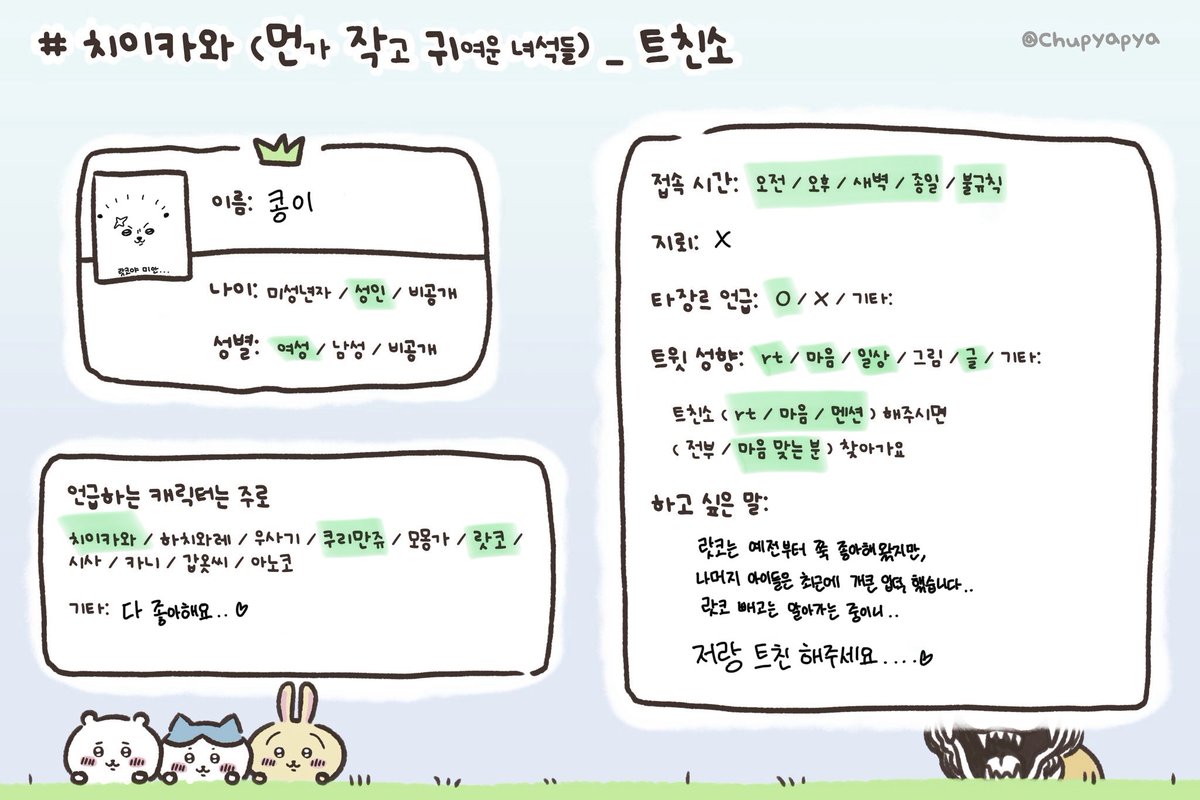 # 치이카와 (먼가 작고 귀여운 녀석들) _ 트친소
@Chupyapya
이름: 콩이
랏코야 미안...
나이: 미성년자 / 성인 / 비공개
성별: 여성 / 남성 / 비공개
언급하는 캐릭터는 주로
치이카와 / 하치와레 / 우사기 / 쿠리만쥬 / 모몽가 / 랏코 /
시사 / 카니 / 갑옷씨 / 아노코
기타: 다 좋아해요..♡
접속 시간: 오전 / 오후 / 새벽 / 종일 / 불규칙
지뢰: X
타장르 언급: O / X / 기타:
트윗 성향: rt / 마음 / 일상 / 그림 / 글 / 기타:
트친소 ( rt / 마음 / 멘션 ) 해주시면
( 전부 / 마음 맞는 분 ) 찾아가요
하고 싶은 말:
랏코는 예전부터 쭉 좋아해왔지만,
나머지 아이들은 최근에 겨큰 입덕 했습니다..
랏코 빼고는 알아가는 중이니..
저랑 트친 해주세요....♡